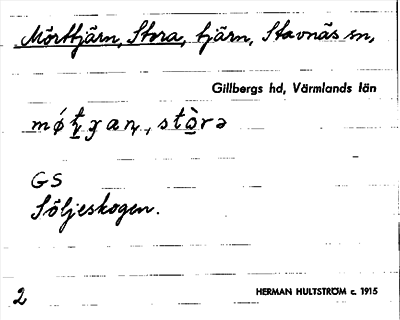 Mörttjärn, Stora, tjärn, Stavnäs sn,
Gillbergs hd, Värmlands län
stò̱rə
GS
Söljeskogen.
2
HERMAN HULTSTRÖM c. 1915